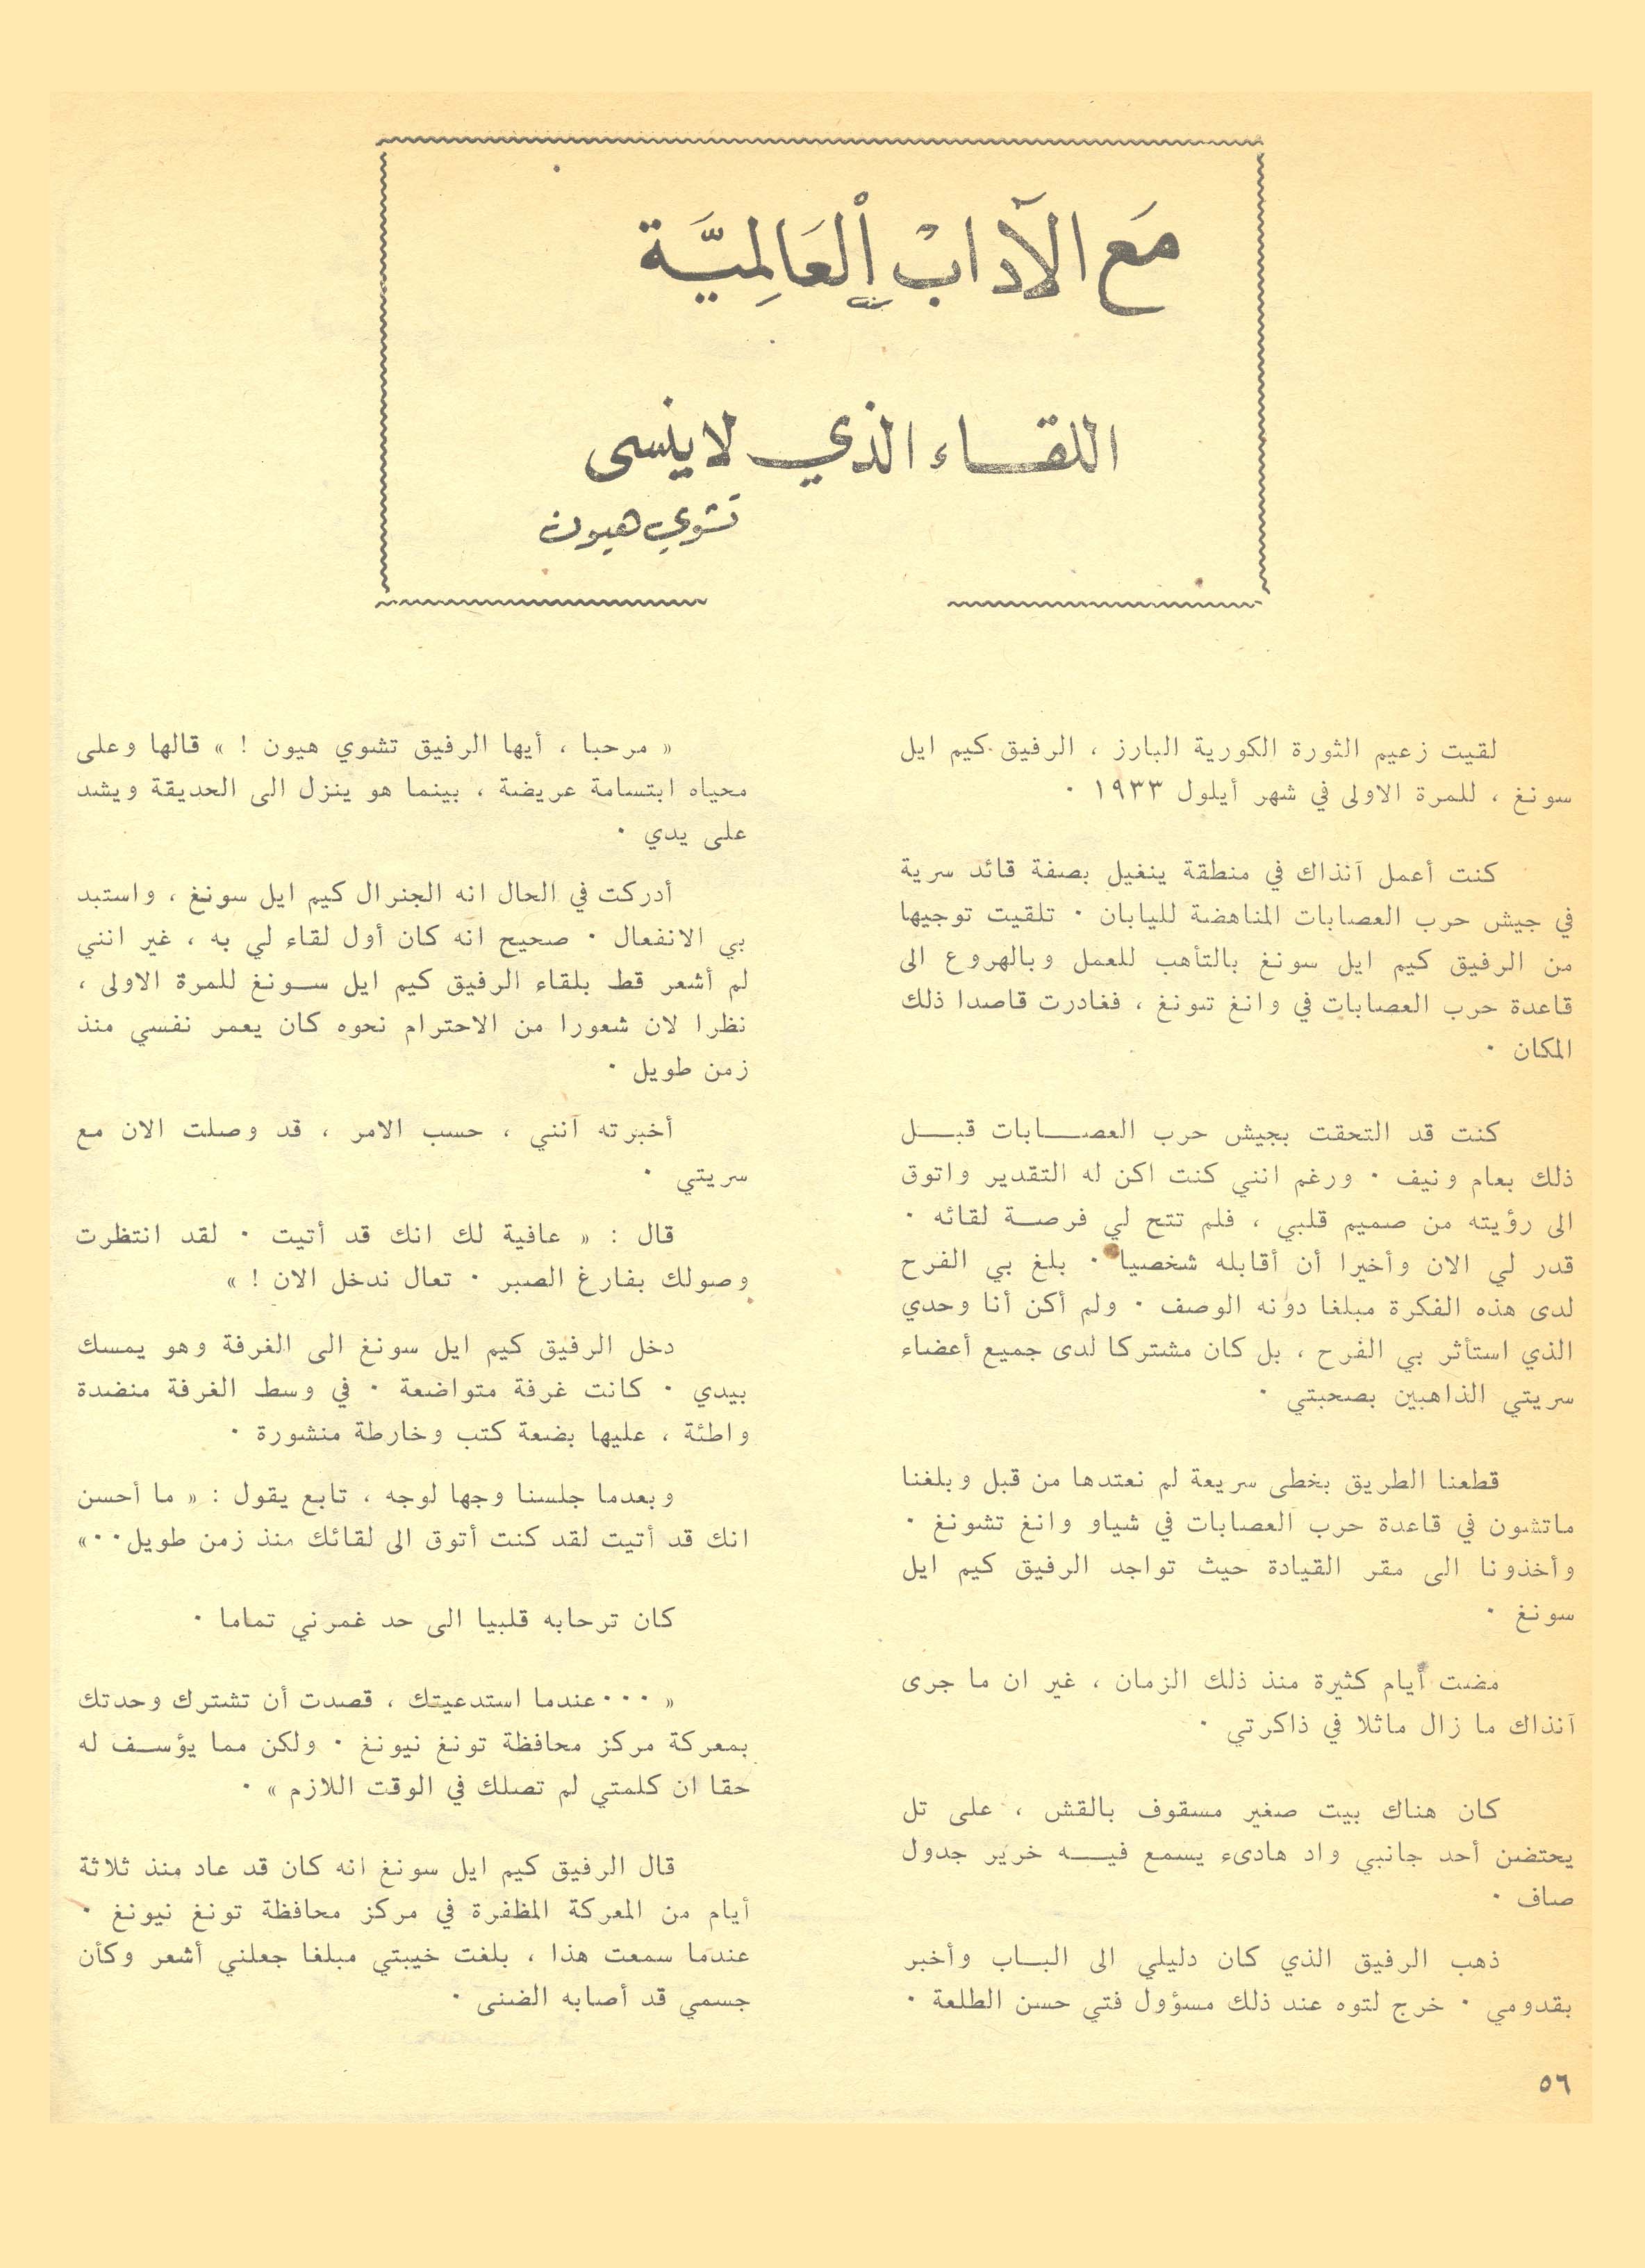 مَع الآدابْ العَالمِيَّة
اللقاء الذي لا ينسى
تشوي هيون
لقيت زعيم الثورة الكورية البارز ، الرفيق كيم ايل
سونغ ، للمرة الاولى في شهر أيلول ١٩٣٣ ٠
كنت أعمل آنذاك في منطقة ينغيل بصفة قائد سرية
في جيش حرب العصابات المناهضة لليابان ٠ تلقيت توجيها
من الرفيق كيم ايل سونغ بالتأهب للعمل وبالهروع الى
قاعدة حرب العصابات في وانغ تسونغ ، فغادرت قاصدا ذلك
المكان ٠
كنت قد التحقت بجيش حرب العصابات قبل
ذلك بعام ونيف ٠ ورغم انني كنت اكن له التقدير واتوق
الى رؤيته من صميم قلبي ، فلم تتح لي فرصة لقائه ٠
قدر لي الان وأخيرا أن أقابله شخصيا ٠ بلغ بي الفرح
لدى هذه الفكرة مبلغا دونه الوصف ٠ ولم أكن أنا وحدي
الذي استأثر بي الفرح ، بل كان مشتركا لدى جميع أعضاء
سريتي الذاهبين بصحبتي ٠
قطعنا الطريق بخطى سريعة لم نعتدها من قبل وبلغنا
ماتشون في قاعدة حرب العصابات في شياو وانغ تشونغ ٠
وأخذونا الى مقر القيادة حيث تواجد الرفيق كيم ايل
سونغ ٠
مضت أيام كثيرة منذ ذلك الزمان ، غير ان ما جرى
آنذاك ما زال ماثلا في ذاكرتي ٠
كان هناك بيت صغير مسقوف بالقش ، على تل
يحتضن أحد جانبي واد هادىء يسمع فيه خرير جدول
صاف ٠
ذهب الرفيق الذي كان دليلي الى الباب وأخبر
بقدومي ٠ خرج لتوه عند ذلك مسؤول فتي حسن الطلعة ٠
« مرحبا ، أيها الرفيق تشوي هيون ! » قالها وعلى
محياه ابتسامة عريضة ، بينما هو ينزل الى الحديقة ويشد
على يدي ٠
أدركت في الحال انه الجنرال كيم ايل سونغ ، واستبد
بي الانفعال ٠ صحيح انه كان أول لقاء لي به ، غير انني
لم أشعر قط بلقاء الرفيق كيم ايل سونغ للمرة الاولى ،
نظرا لان شعورا من الاحترام نحوه كان يعمر نفسي منذ
زمن طويل ٠
أخبرته آنني ، حسب الامر ، قد وصلت الان مع
سريتي ٠
قال : « عافية لك انك قد أتيت ٠ لقد انتظرت
وصولك بفارغ الصبر ٠ تعال ندخل الان ! »
دخل الرفيق كيم ايل سونغ الى الغرفة وهو يمسك
بيدي ٠ كانت غرفة متواضعة ٠ في وسط الغرفة منضدة
واطئة ، عليها بضعة كتب وخارطة منشورة ٠
وبعدما جلسنا وجها لوجه ، تابع يقول : « ما أحسن
انك قد أتيت لقد كنت أتوق الى لقائك منذ زمن طويل٠٠»
كان ترحابه قلبيا الى حد غمرني تماما ٠
« ٠٠٠عندما استدعيتك ، قصدت أن تشترك وحدتك
بمعركة مركز محافظة تونغ نيونغ ٠ ولكن مما يؤسف له
حقا ان كلمتي لم تصلك في الوقت اللازم » ٠
قال الرفيق كيم ايل سونغ انه كان قد عاد منذ ثلاثة
أيام من المعركة المظفرة في مركز محافظة تونغ نيونغ ٠
عندما سمعت هذا ، بلغت خيبتي مبلغا جعلني أشعر وكأن
جسمي قد أصابه الضنى ٠
٥٦